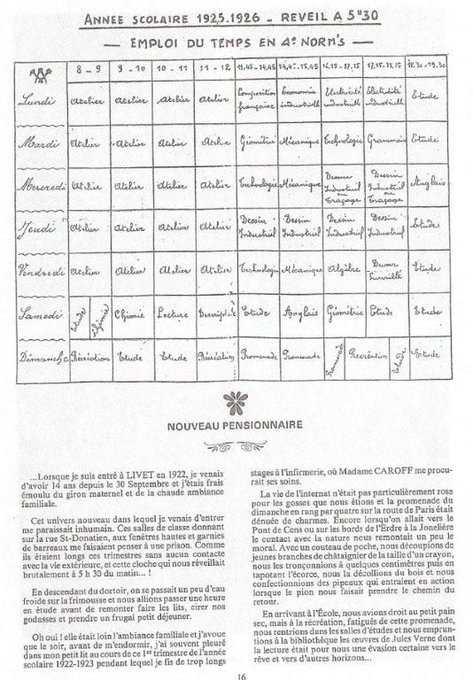 ANNÉE SCOLAIRE 1925-1926 _ REVEIL A 5ʰ30
— EMPLOI DU TEMPS EN 4ᵉ NORM'S —
8 - 9 9 - 10 10 - 11 11 - 12 17,15 - 18,15
Lundi Atelier Atelier Atelier Atelier Composition française Economie industrielle Electricité industrielle Electricité industrielle Etude
Mardi Atelier Atelier Atelier Atelier Géométrie Mécanique Technologie Grammaire Etude
Mercredi Atelier Atelier Atelier Atelier Technologie Mécanique Dessin Industriel ou Traçage Dessin Industriel ou Traçage Anglais
Jeudi Atelier Atelier Atelier Atelier Dessin Industriel Dessin Industriel Dessin Industriel Dessin Industriel Etude
Vendredi Atelier Atelier Atelier Atelier Technologie Mécanique Algèbre Etude
Samedi Etude Chimie Chimie Lecture Etude Anglais Géométrie Etude Etude
Dimanche Récréation Etude Etude Récréation Promenade Promenade Promenade Récréation Etude Etude
NOUVEAU PENSIONNAIRE
...Lorsque je suis entré à LIVET en 1922, je venais
d'avoir 14 ans depuis le 30 Septembre et j'étais frais
émoulu du giron maternel et de la chaude ambiance
familiale.
Cet univers nouveau dans lequel je venais d'entrer
me paraissait inhumain. Ces salles de classe donnant
sur la rue St-Donatien, aux fenêtres hautes et garnies
de barreaux me faisaient penser à une prison. Comme
ils étaient longs ces trimestres sans aucun contacte
avec la vie extérieure, et cette cloche qui nous réveillait
brutalement à 5 h 30 du matin... !
En descendant du dortoir, on se passait un peu d'eau
froide sur la frimousse et nous allions passer une heure
en étude avant de remonter faire les lits, cirer nos
godasses et prendre un frugal petit déjeuner.
Oh oui ! elle était loin l'ambiance familiale et j'avoue
que le soir, avant de m'endormir, j'ai souvent pleuré
dans mon petit lit au cours de ce 1er trimestre de l'année
scolaire 1922-1923 pendant lequel je fis de trop longs
stages à l'infirmerie, où Madame CAROFF me procu-
rait ses soins.
La vie de l'internat n'était pas particulièrement rose
pour les gosses que nous étions et la promenade du
dimanche en rang par quatre sur la route de Paris était
dénuée de charmes. Encore lorsqu'on allait vers le
Pont de Cens ou sur les bords de l'Erdre à la Jonelière
le contact avec la nature nous remontait un peu le
moral. Avec un couteau de poche, nous découpions de
jeunes branches de châtaignier de la taille d'un crayon,
nous les tronçonnions à quelques centimètres puis en
tapotant l'écorce, nous la décollions du bois et nous
confectionnions des pipeaux qui entraient en action
lorsque le pion nous faisait prendre le chemin du
retour.
En arrivant à l'École, nous avions droit au petit pain
sec, mais à la récréation, fatigués de cette promenade,
nous rentrions dans les salles d'études et nous emprun-
tions à la bibliothèque les œuvres de Jules Verne dont
la lecture était pour nous une évasion certaine vers le
rêve et vers d'autres horizons...
16